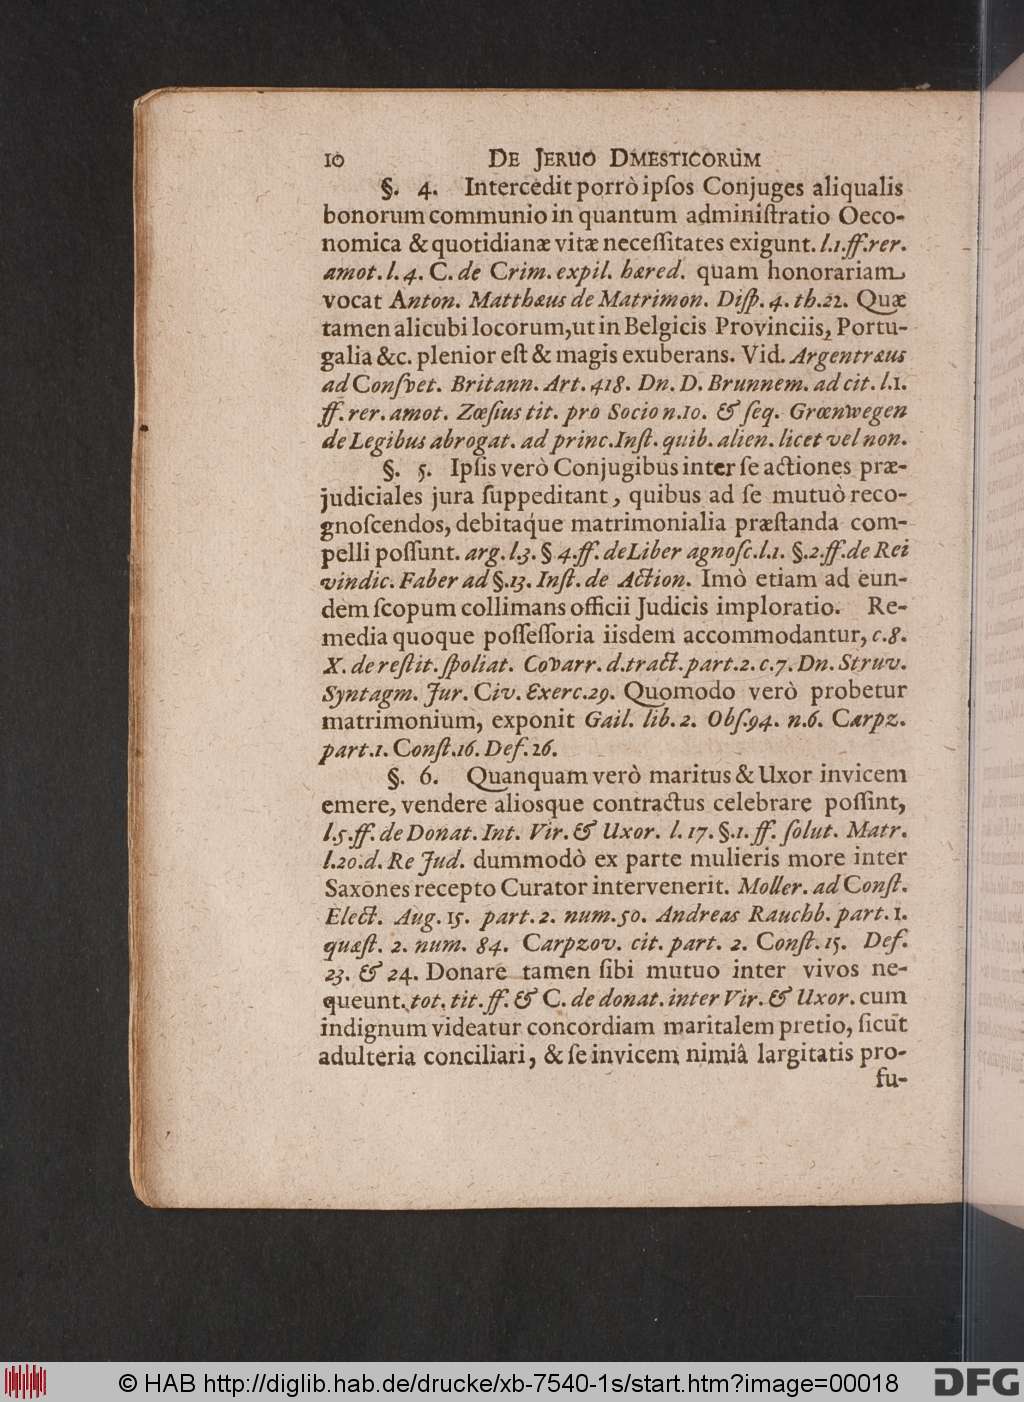 10 DE JERUO DMESTICORUM
§. 4. Intercedit porrò ipſos Conjuges aliqualis
bonorum communio in quantum adminiſtratio Oeco-
nomica & quotidianæ vitæ neceſſitates exigunt. l.1.ff.rer.
amot. l. 4. C. de Crim. expil. hæred. quam honorariam
vocat Anton. Matthæus de Matrimon. Diſp. 4. th. 22. Quæ
tamen alicubi locorum, ut in Belgicis Provinciis, Portu-
galia &c. plenior eſt & magis exuberans. Vid. Argentræus
ad Conſvet. Britann. Art. 418. Dn. D. Brunnem. ad cit. l.1.
ff. rer. amot. Zœſius tit. pro Socio n.10. & ſeq. Grœnwegen
de Legibus abrogat. ad princ. Inſt. quib. alien. licet vel non.
§. 5. Ipſis verò Conjugibus inter ſe actiones præ-
judiciales jura ſuppeditant, quibus ad ſe mutuò reco-
gnoſcendos, debitaque matrimonialia præſtanda com-
pelli poſſunt. arg. l.3. § 4. ff. de Liber agnoſc. l.1. §.2. ff. de Rei
vindic. Faber ad §.13. Inſt. de Action. Imò etiam ad eun-
dem ſcopum collimans officii Judicis imploratio. Re-
media quoque poſſeſſoria iisdem accommodantur, c.8.
X. de reſtit. ſpoliat. Covarr. d. tract. part. 2. c. 7. Dn. Struv.
Syntagm. Jur. Civ. Exerc. 29. Quomodo verò probetur
matrimonium, exponit Gail. lib. 2. Obſ. 94. n. 6. Carpz.
part. 1. Conſt. 16. Def. 26.
§. 6. Quanquam verò maritus & Uxor invicem
emere, vendere aliosque contractus celebrare poſſint,
l.5. ff. de Donat. Int. Vir. & Uxor. l. 17. §.1. ff. ſolut. Matr.
l.20. d. Re Jud. dummodò ex parte mulieris more inter
Saxones recepto Curator intervenerit. Moller. ad Conſt.
Elect. Aug. 15. part. 2. num. 50. Andreas Rauchb. part. 1.
quæſt. 2. num. 84. Carpzov. cit. part. 2. Conſt. 15. Def.
23. & 24. Donare tamen ſibi mutuo inter vivos ne-
queunt. tot. tit. ff. & C. de donat. inter Vir. & Uxor. cum
indignum videatur concordiam maritalem pretio, ſicut
adulteria conciliari, & ſe invicem nimiâ largitatis pro-
fu-
© HAB http://diglib.hab.de/drucke/xb-7540-1s/start.htm?image=00018
DFG